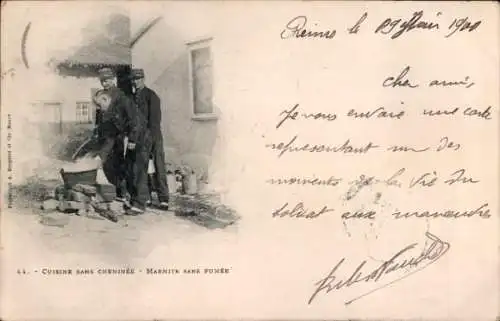 Reims le 29 Mai 1900
Cher ami,
Je vous envoie une carte
représentant un des
moments de la vie du
soldat aux manœuvres
44. - CUISINE SANS CHEMINÉE - MARMITE SANS FUMÉE